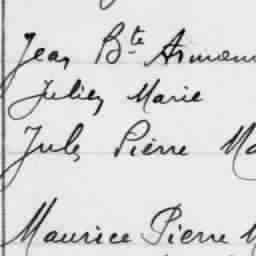 Jean Bte Armand
Julien Marie
Jules Pierre Ma
Maurice Pierre M